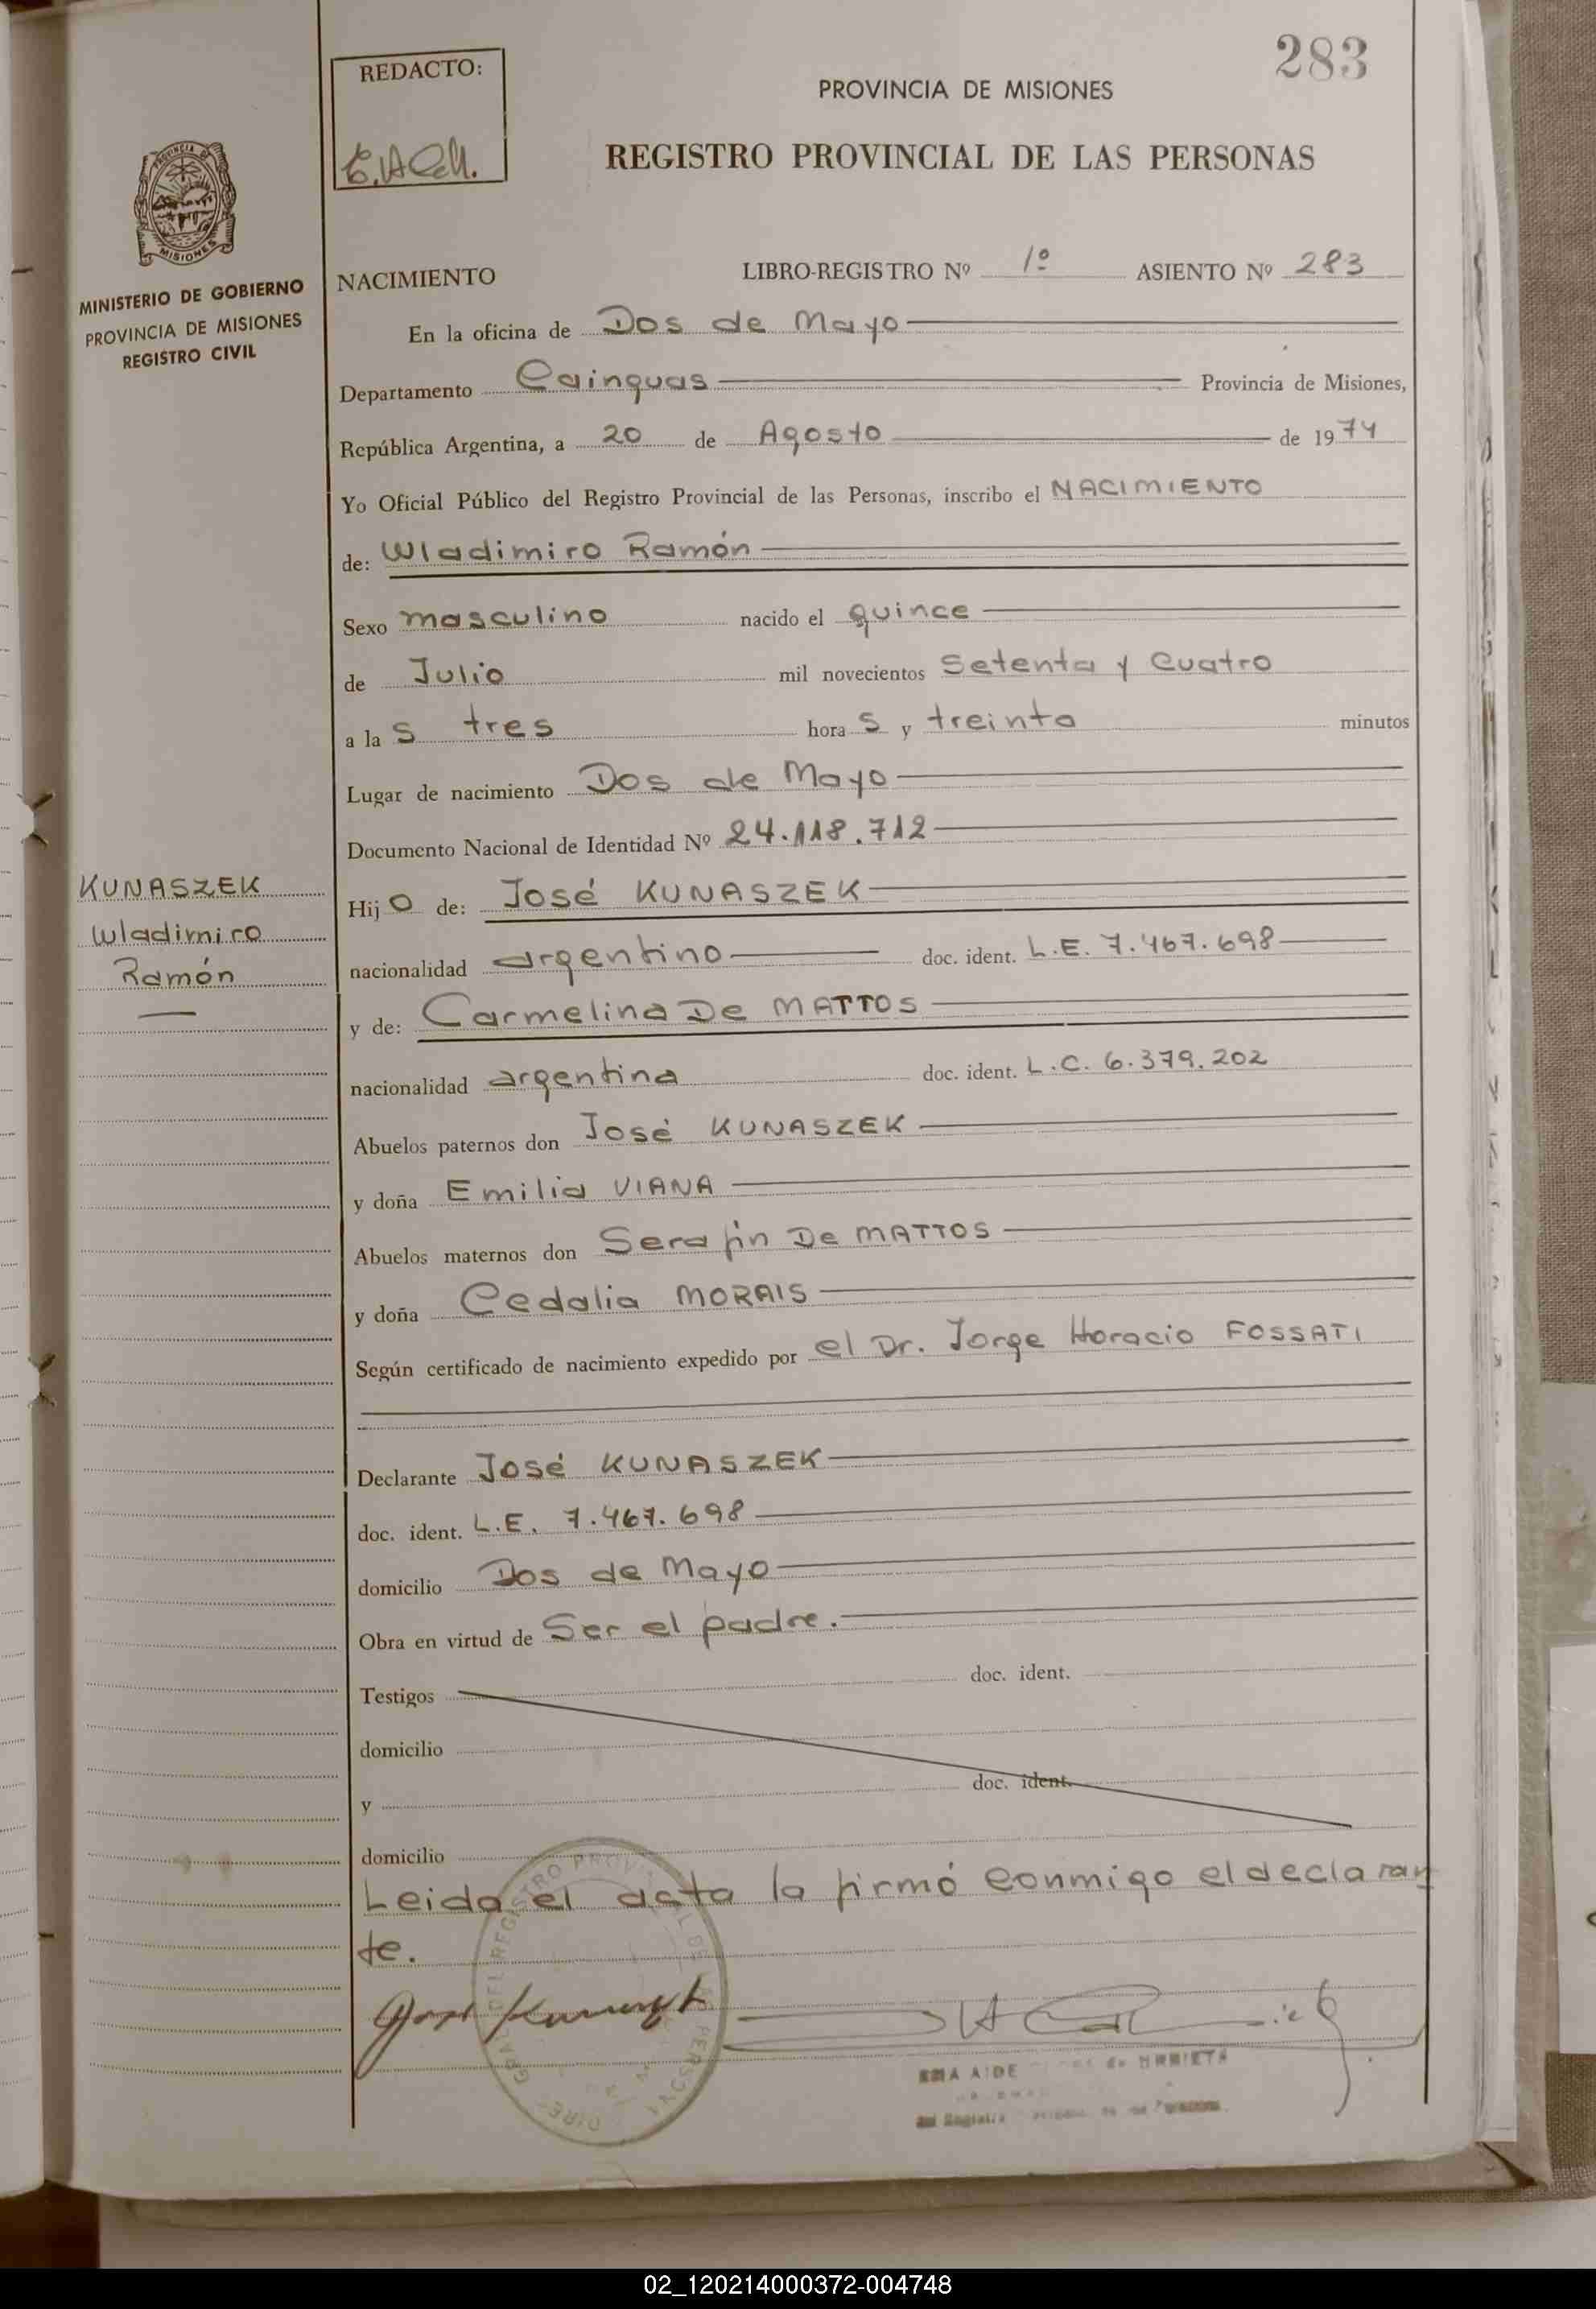 283
REDACTO:
PROVINCIA DE MISIONES
REGISTRO PROVINCIAL DE LAS PERSONAS
PROVINCIA DE
MISIONES
MINISTERIO DE GOBIERNO
PROVINCIA DE MISIONES
REGISTRO CIVIL
NACIMIENTO LIBRO-REGISTRO Nº 1º ASIENTO Nº 283
En la oficina de Dos de Mayo
Departamento Cainguas Provincia de Misiones,
República Argentina, a 20 de Agosto de 1974
Yo Oficial Público del Registro Provincial de las Personas, inscribo el NACIMIENTO
de: Wladimiro Ramón
Sexo masculino nacido el quince
de Julio mil novecientos Setenta y cuatro
a la s tres hora s y treinta minutos
Lugar de nacimiento Dos de Mayo
Documento Nacional de Identidad Nº 24.118.712
KUNASZEK
Wladimiro
Ramón
Hij o de: José KUNASZEK
nacionalidad argentino doc. ident. L.E. 7.467.698
y de: Carmelina De MATTOS
nacionalidad argentina doc. ident. L.C. 6.379.202
Abuelos paternos don José KUNASZEK
y doña Emilia VIANA
Abuelos maternos don Serafin De MATTOS
y doña Cedalia MORAIS
Según certificado de nacimiento expedido por el Dr. Jorge Horacio FOSSATI
Declarante José KUNASZEK
doc. ident. L.E. 7.467.698
domicilio Dos de Mayo
Obra en virtud de Ser el padre.
Testigos doc. ident.
domicilio
y doc. ident.
domicilio
Leida el acta la firmó conmigo el declaran
te.
02_120214000372-004748